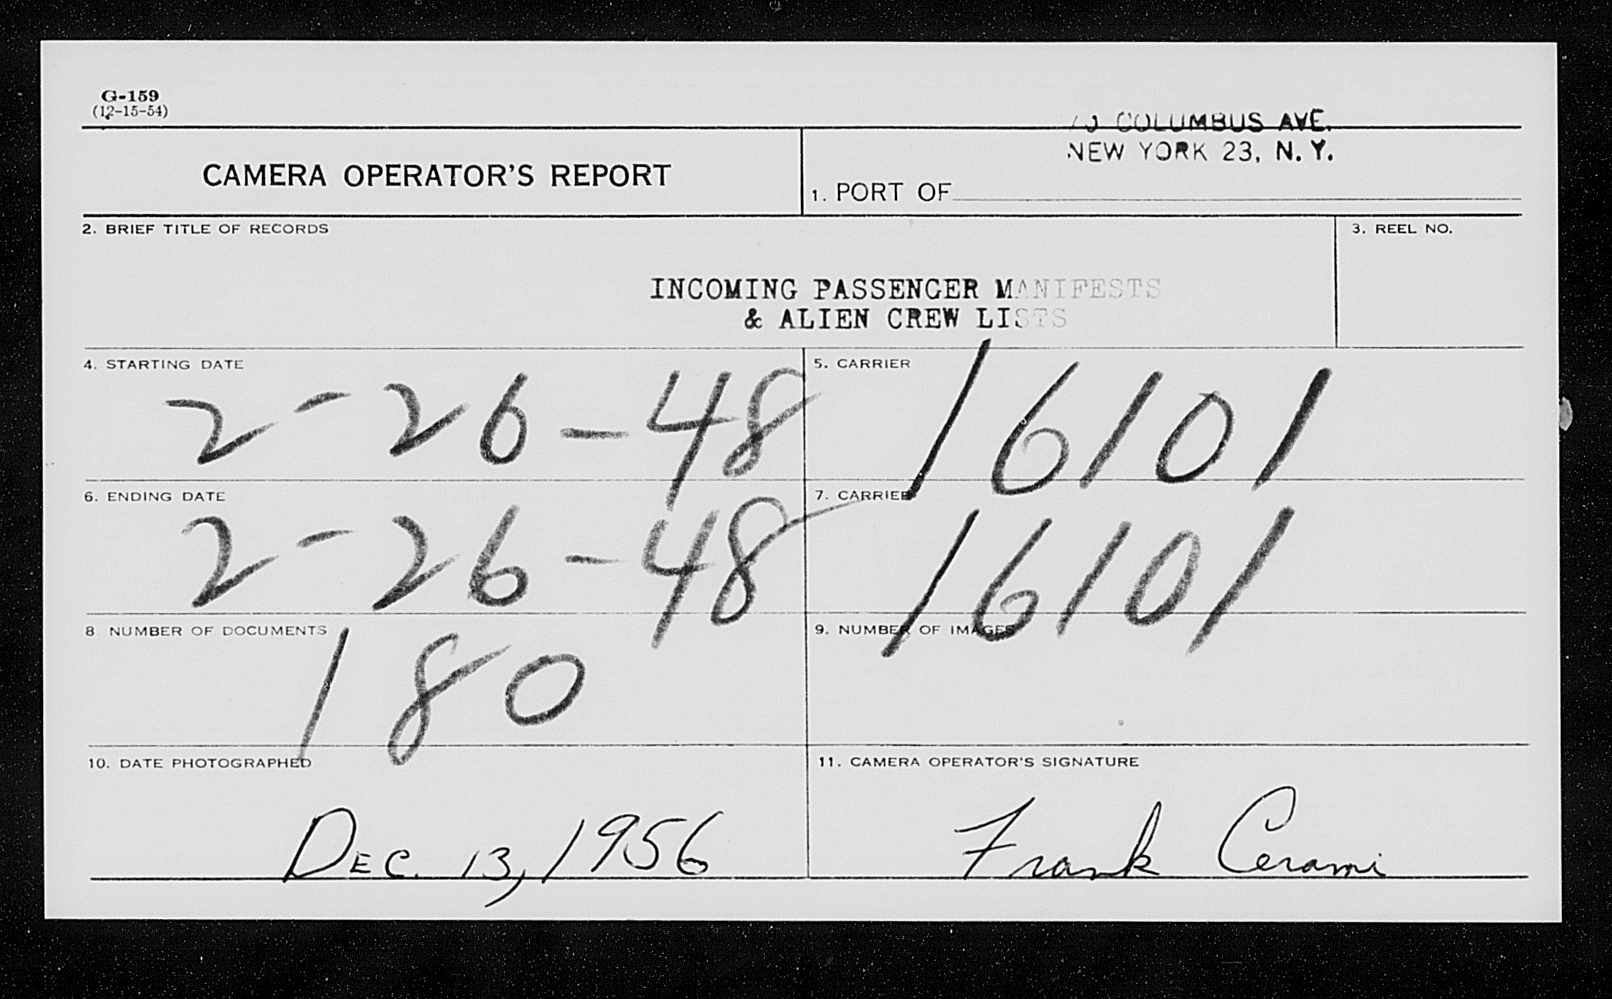 G-159
(12-15-54)
COLUMBUS AVE.
NEW YORK 23, N. Y.
CAMERA OPERATOR'S REPORT
1. PORT OF
2. BRIEF TITLE OF RECORDS
3. REEL NO.
INCOMING PASSENGER MANIFESTS
& ALIEN CREW LISTS
4. STARTING DATE
2-26-48
5. CARRIER
16101
6. ENDING DATE
2-26-48
7. CARRIER
16101
8 NUMBER OF DOCUMENTS
180
9. NUMBER OF IMAGES
10. DATE PHOTOGRAPHED
DEC. 13, 1956
11. CAMERA OPERATOR'S SIGNATURE
Frank Cerami